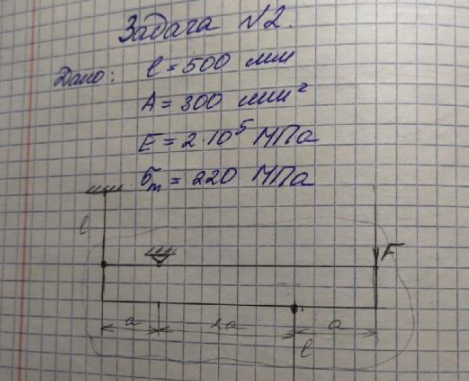 Задача №2.
Дано: l = 500 мм
A = 300 мм²
E = 2·10⁵ МПа
σт = 220 МПа
l
F
a 2a a
l